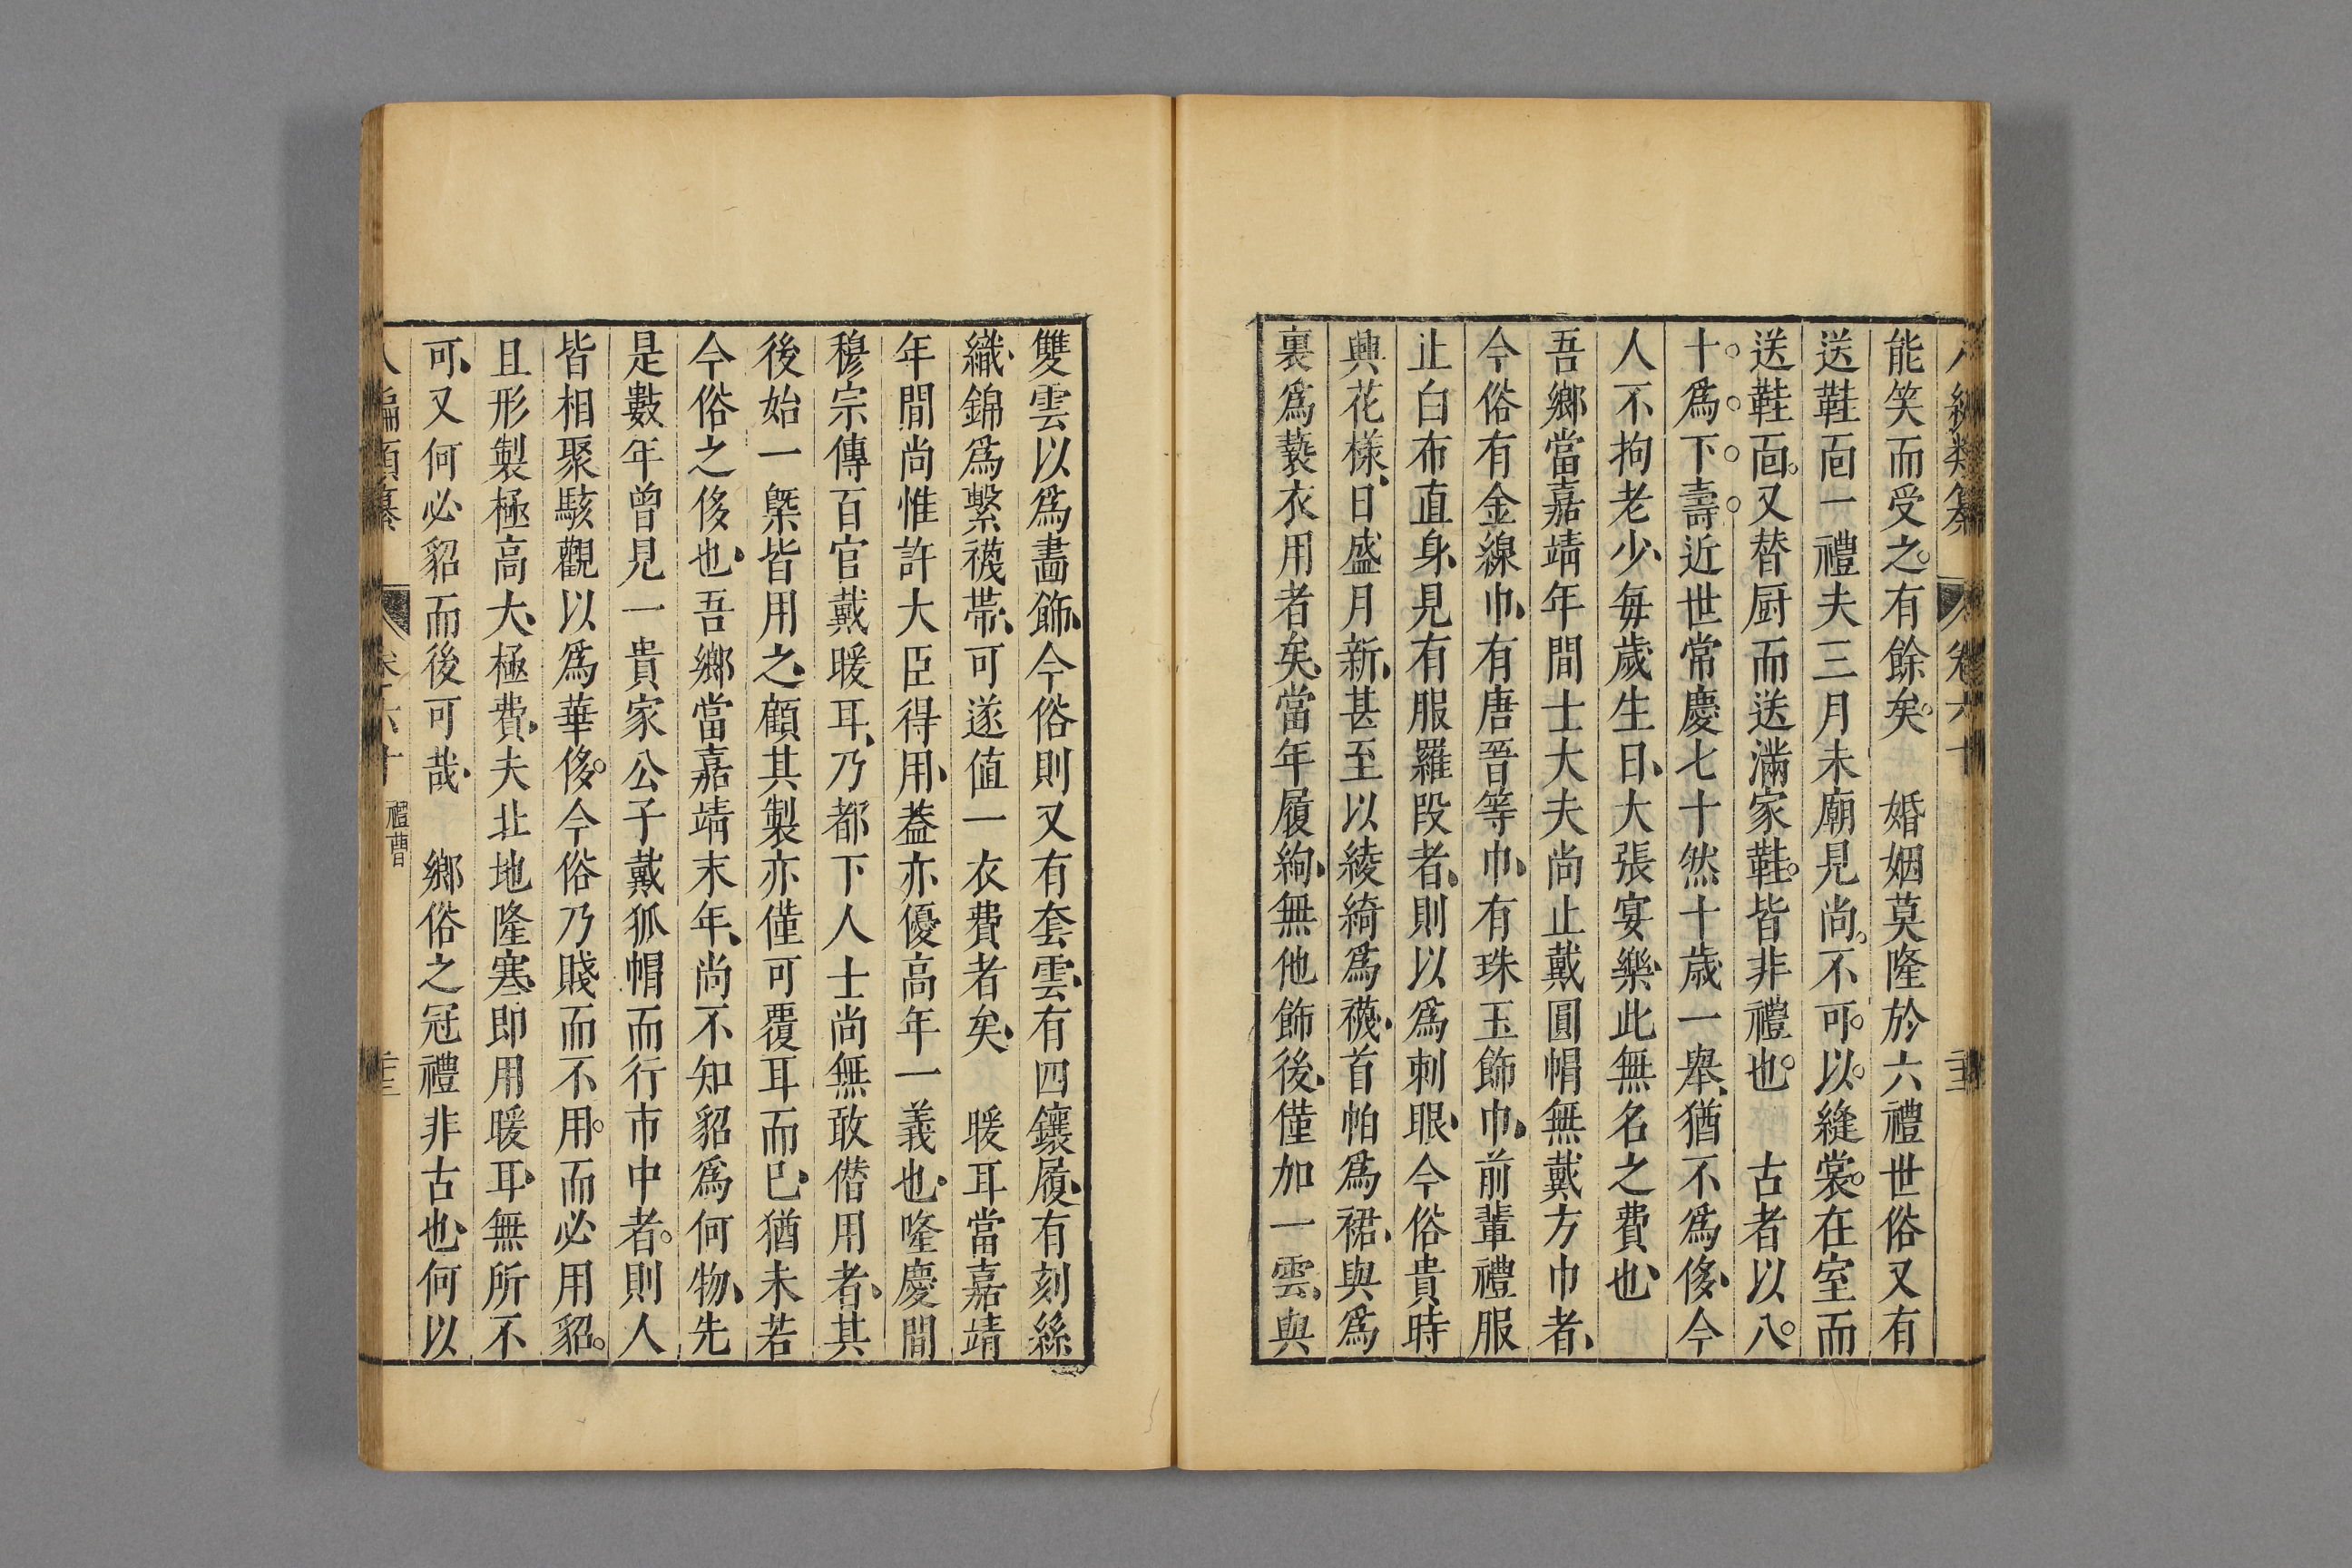 八編類纂 卷六十
能笑而受之有餘矣　婚姻莫隆於六禮世俗又有
送鞋面一禮夫三月未廟見尚不可以縫裳在室而
送鞋面又替厨而送滿家鞋皆非禮也　古者以八
十爲下壽近世常慶七十然十歲一舉猶不爲侈今
人不拘老少毎歲生日大張宴樂此無名之費也
吾鄉當嘉靖年間士大夫尚止戴圓帽無戴方巾者
今俗有金線巾有唐晉等巾有珠玉飾巾前輩禮服
止白布直身見有服羅段者則以爲刺眼今俗貴時
興花様日盛月新甚至以綾綺爲襪首帕爲裙與爲
裏爲褻衣用者矣當年履絢無他飾後僅加一雲與
雙雲以爲畵飾今俗則又有套雲有四鑲履有刻絲
織錦爲繫襪帶可遂值一衣費者矣　暖耳當嘉靖
年間尚惟許大臣得用葢亦優高年一義也隆慶間
穆宗傳百官戴暖耳乃都下人士尚無敢僣用者其
後始一槩皆用之顧其製亦僅可覆耳而已猶未若
今俗之侈也吾鄉當嘉靖末年尚不知貂爲何物先
是數年曾見一貴家公子戴狐帽而行市中者則人
皆相聚駭觀以爲華侈今俗乃賤而不用而必用貂
且形製極高大極費夫北地隆寒即用暖耳無所不
可又何必貂而後可哉　鄉俗之冠禮非古也何以
八編類纂 卷六十 禮曹